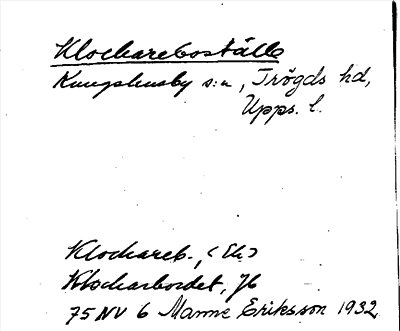 Klockareboställe
Kungshusby s:n, Trögds hd,
Upps. l.
Klockareb., (Ek)
Klockarbordet, Jb
75 NV 6 Manne Eriksson 1932